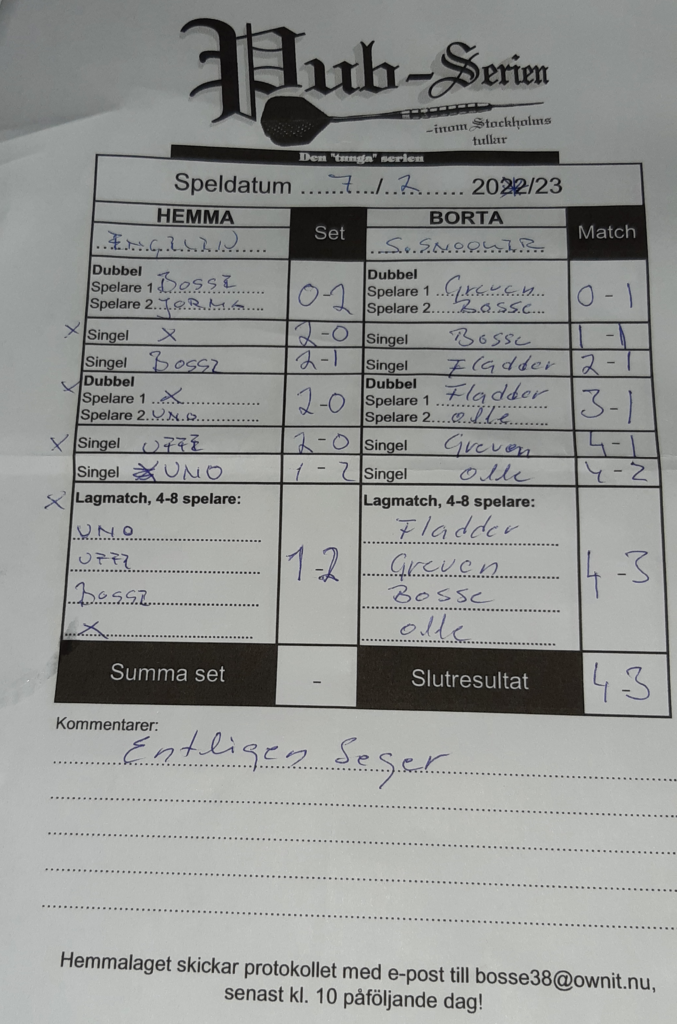 Pub-Serien
-inom Stockholms
tullar
Den "tunga" serien
Speldatum ......7.../..2....... 2022/23
HEMMA Set BORTA Match
ENGELEN S.SNOOKER
Dubbel Dubbel
Spelare 1 BOSSE 0-2 Spelare 1 Greven 0-1
Spelare 2 JORMA Spelare 2 Bosse
x Singel X 2-0 Singel Bosse 1-1
Singel BOSSE 2-1 Singel Fladder 2-1
x Dubbel Dubbel
Spelare 1 X 2-0 Spelare 1 Fladder 3-1
Spelare 2 UNO Spelare 2 olle
x Singel UFFE 2-0 Singel Greven 4-1
Singel UNO 1-2 Singel olle 4-2
x Lagmatch, 4-8 spelare: Lagmatch, 4-8 spelare:
UNO Fladder
UFFE 1-2 Greven 4-3
BOSSE Bosse
X olle
Summa set - Slutresultat 4-3
Kommentarer:
Entligen Seger
Hemmalaget skickar protokollet med e-post till bosse38@ownit.nu,
senast kl. 10 påföljande dag!